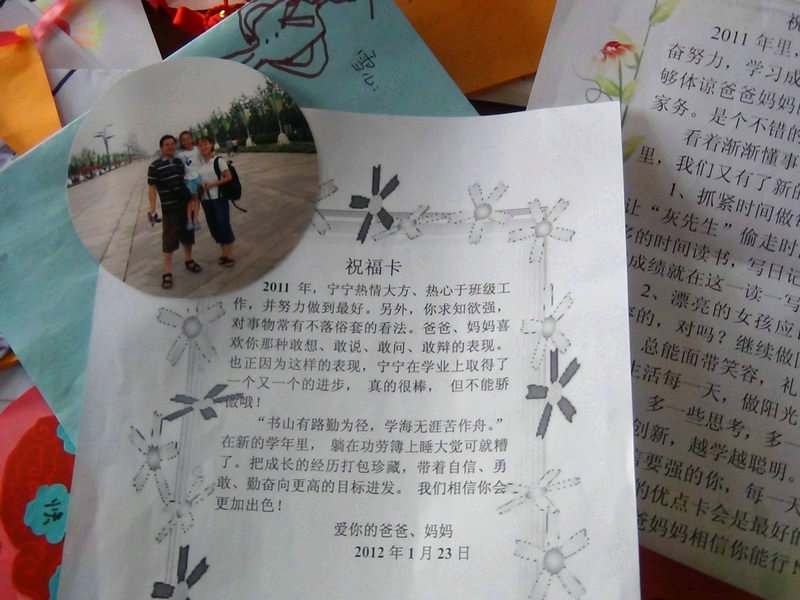 雪心:
祝福卡
2011 年，宁宁热情大方、热心于班级工
作，并努力做到最好。另外，你求知欲强，
对事物常有不落俗套的看法。爸爸、妈妈喜
欢你那种敢想、敢说、敢问、敢辩的表现。
也正因为这样的表现，宁宁在学业上取得了
一个又一个的进步， 真的很棒， 但不能骄
傲哦！
“书山有路勤为径，学海无涯苦作舟。”
在新的学年里， 躺在功劳簿上睡大觉可就糟
了。把成长的经历打包珍藏，带着自信、勇
敢、勤奋向更高的目标进发。 我们相信你会
更加出色！
爱你的爸爸、妈妈
2012 年 1 月 23 日
祝
2011 年里，
奋努力，学习成
够体谅爸爸妈妈的
家务。是个不错的
看着渐渐懂事
里，我们又有了新的
1、抓紧时间做
让“灰先生”偷走时
多的时间读书，写日记
成绩就在这一读一写
2、漂亮的女孩应
的，对吗？继续做
总能面带笑容，礼
生活每一天，做阳光
多一些思考，多一
创新，越学越聪明。
要强的你，每一天
的优点卡会是最好的
爸妈妈相信你能行！
快